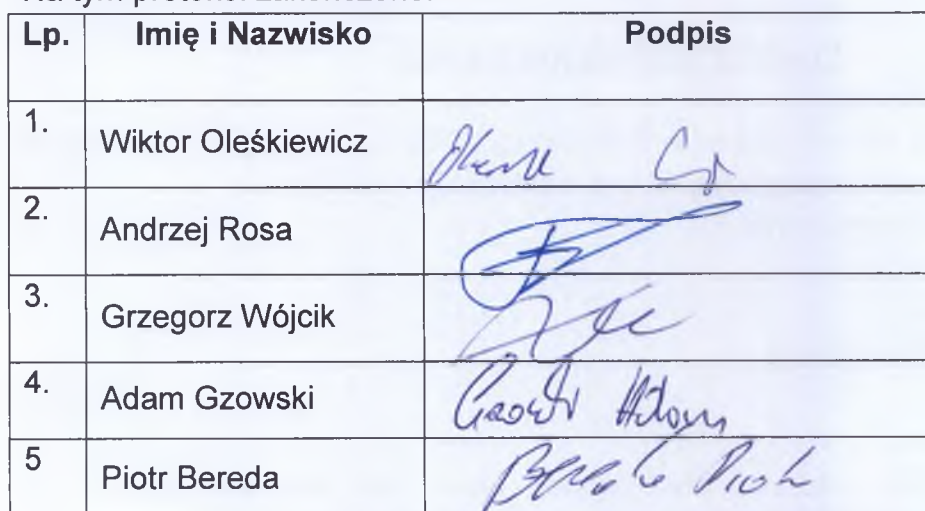 Na tym protokół zakończono.
Lp. Imię i Nazwisko Podpis
1. Wiktor Oleśkiewicz
2. Andrzej Rosa
3. Grzegorz Wójcik
4. Adam Gzowski Gzowski Adam
5 Piotr Bereda Bereda Piotr